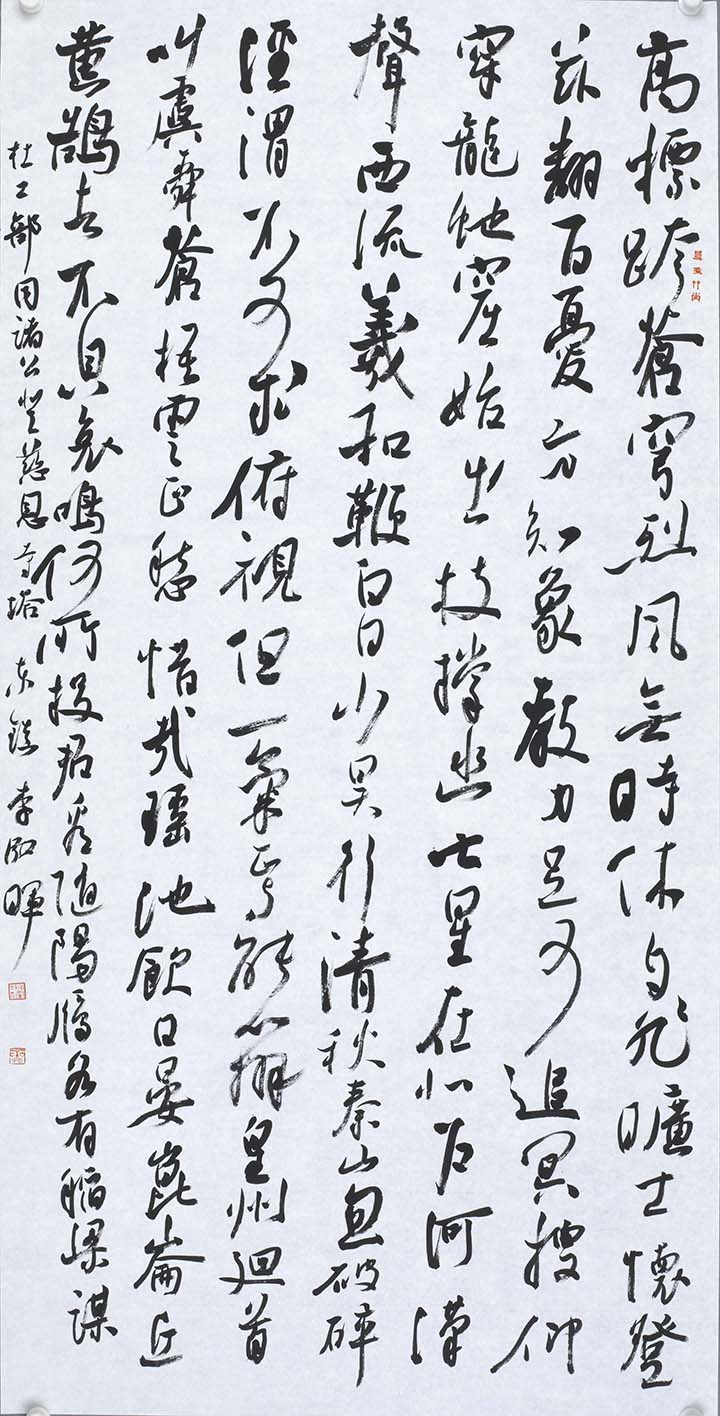 高標跨蒼穹烈風無時休自非曠士懷登
茲翻百憂方知象教力足可追冥搜仰
穿龍蛇窟始出枝撐幽七星在北戶河漢
聲西流羲和鞭白日少昊行清秋秦山忽破碎
涇渭不可求俯視但一氣焉能辨皇州迴首
叫虞舜蒼梧雲正愁惜哉瑤池飲日晏崑崙丘
黃鵠去不息哀鳴何所投君看隨陽雁各有稻粱謀
杜工部同諸公登慈恩寺塔 李